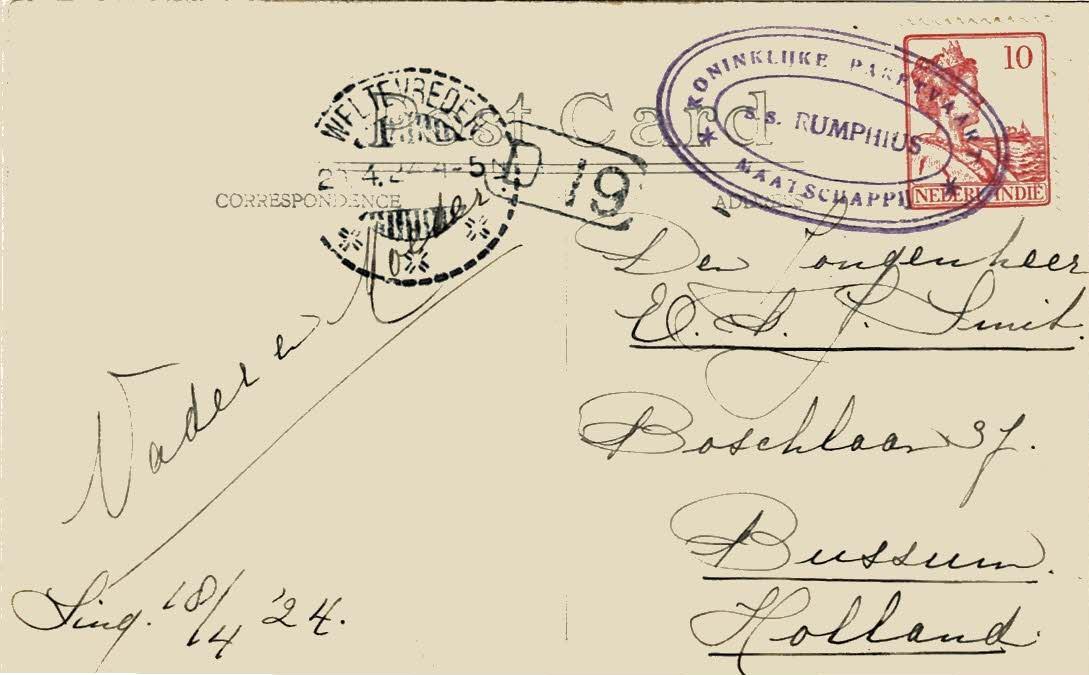 Post Card
CORRESPONDENCE
ADDRESS
WELTEVREDEN
4.24 4-5N
19
KONINKLIJKE PAKETVAART
S.S. RUMPHIUS
MAATSCHAPPIJ
10
NEDERL. INDIE
Vader en Moeder
Sing. 18/4 '24.
Den Jongenheer
Smit.
Boschlaan 37.
Bussum.
Holland.